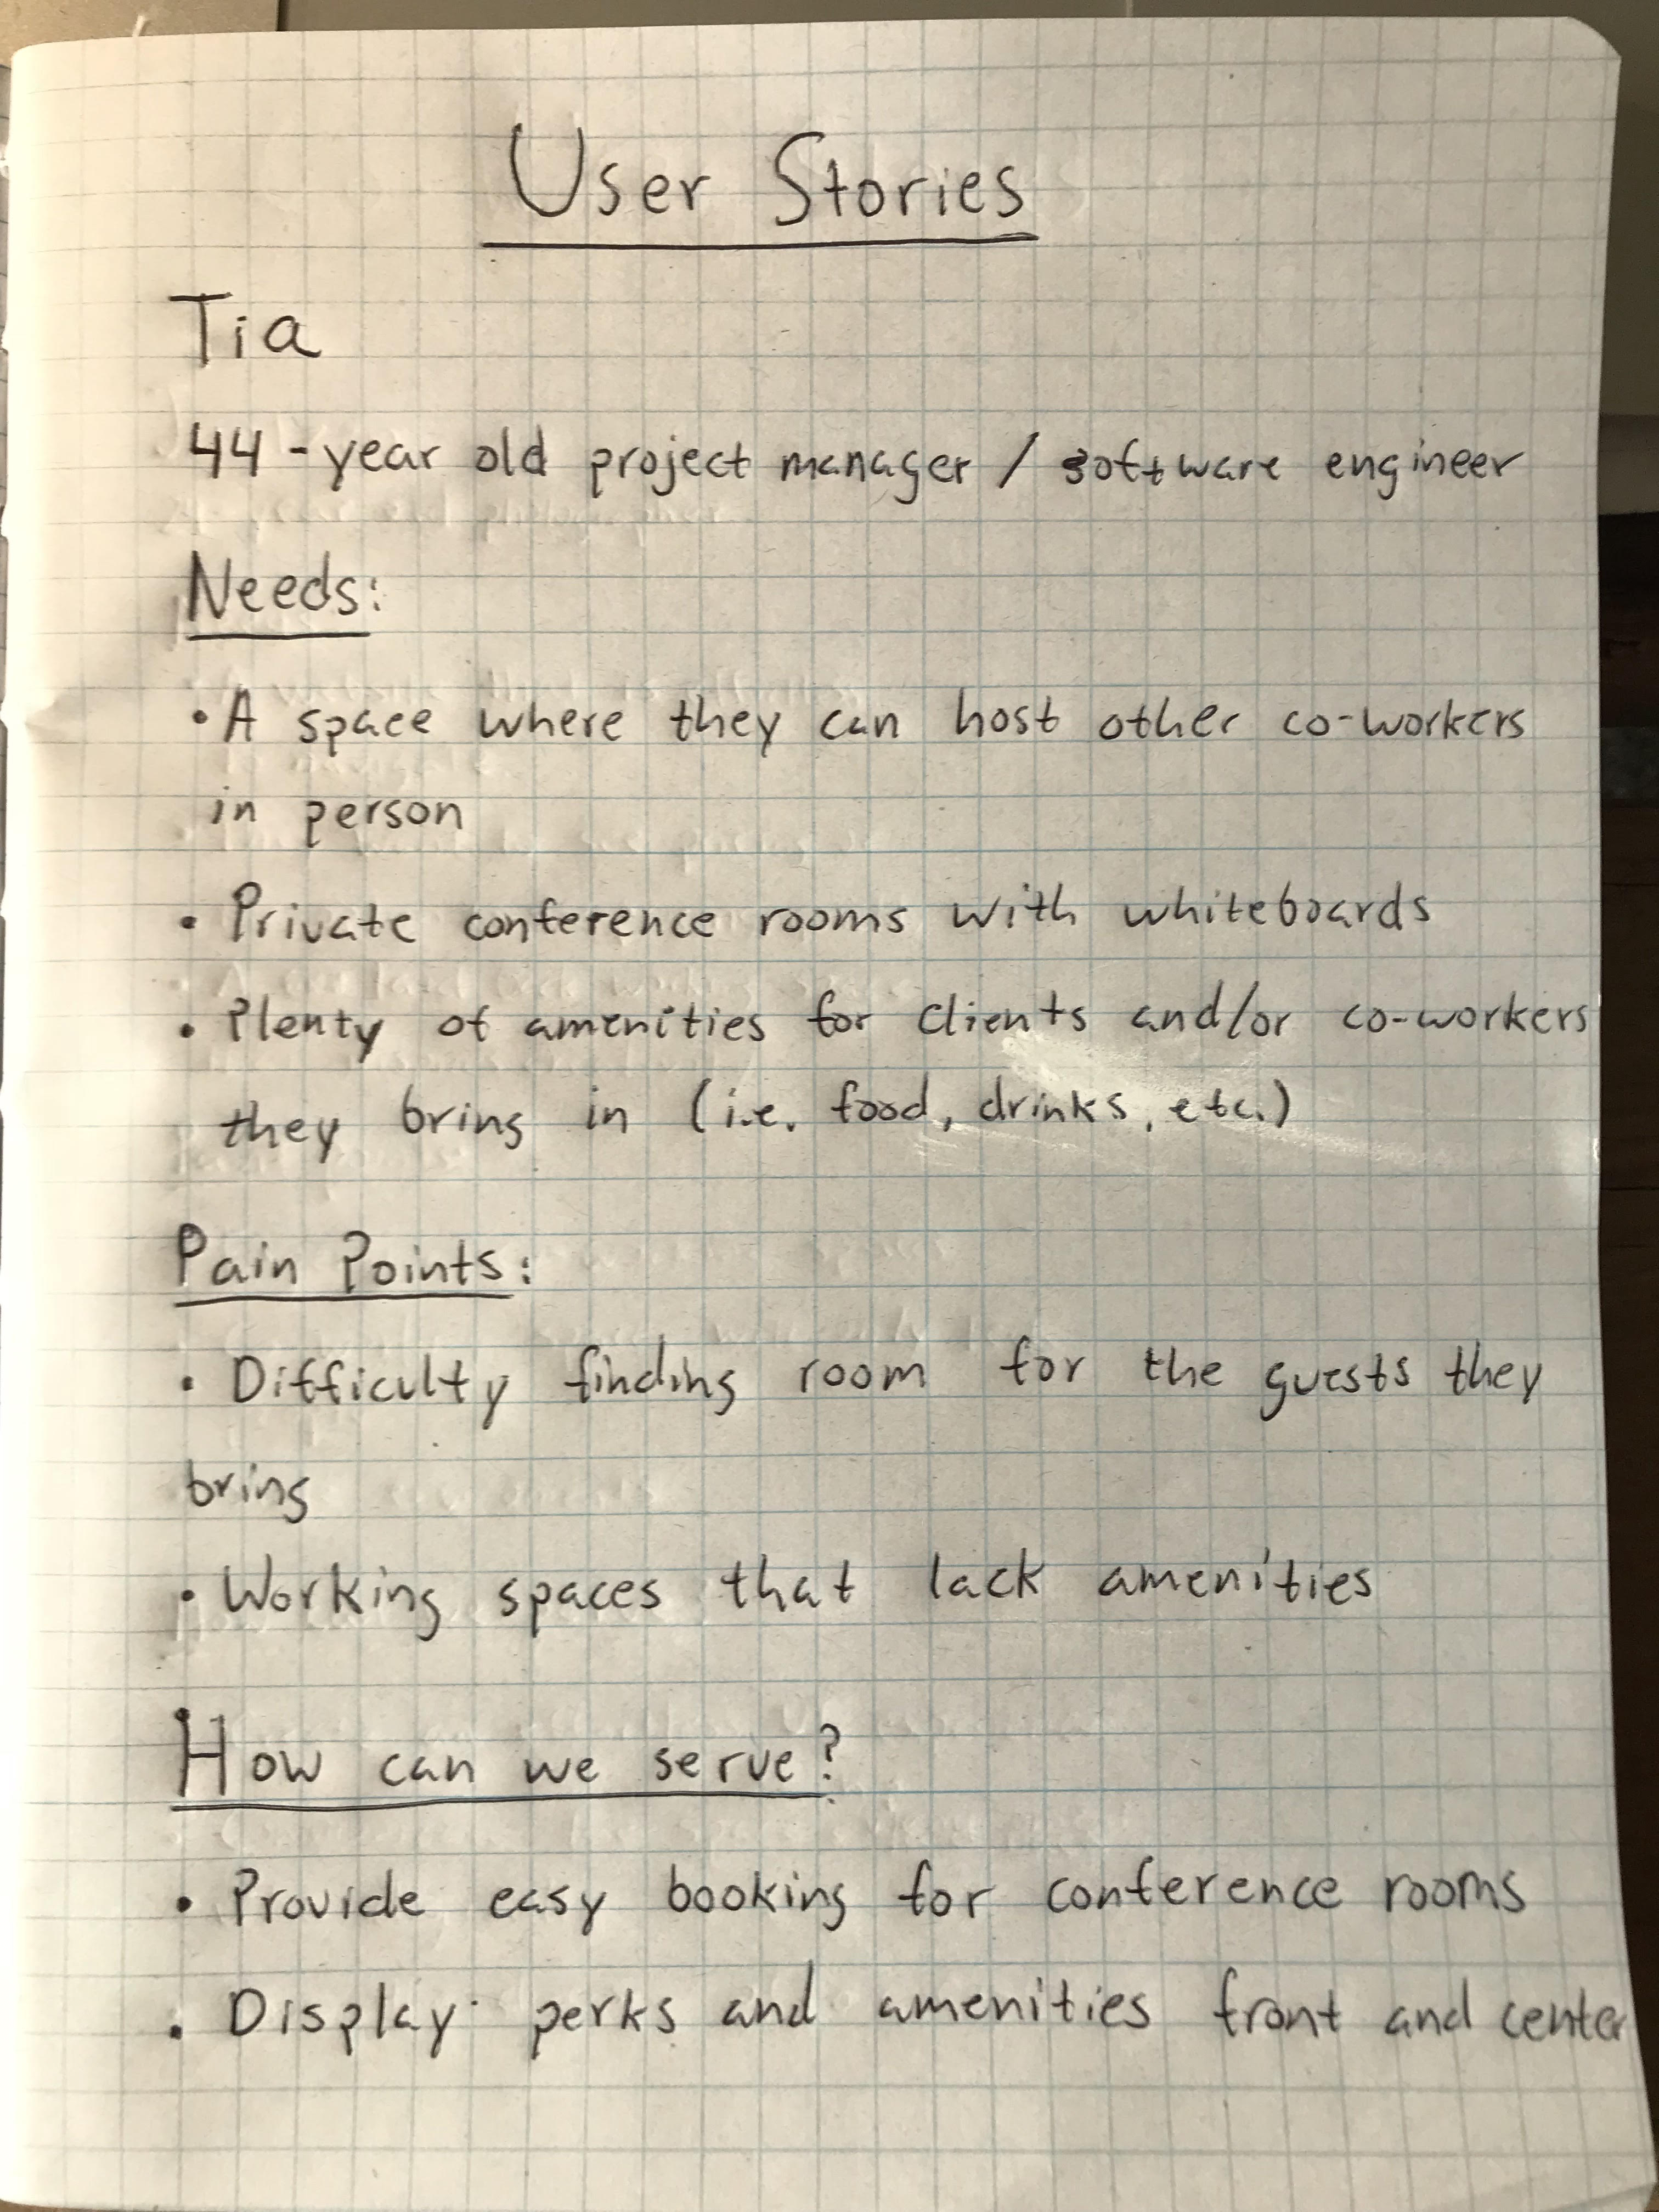 User Stories
Tia
44-year old project manager / software engineer
Needs:
• A space where they can host other co-workers
in person
• Private conference rooms with whiteboards
• Plenty of amenities for clients and/or co-workers
they bring in (i.e. food, drinks, etc.)
Pain Points:
• Difficulty finding room for the guests they
bring
• Working spaces that lack amenities
How can we serve?
• Provide easy booking for conference rooms
• Display perks and amenities front and center